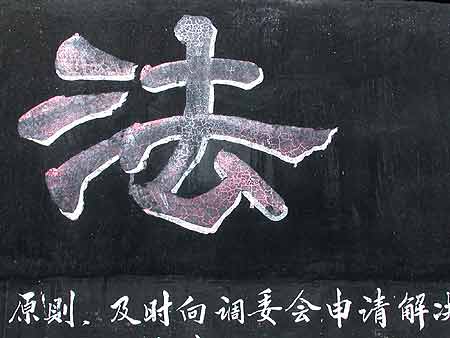 法
原则、及时向调委会申请解决